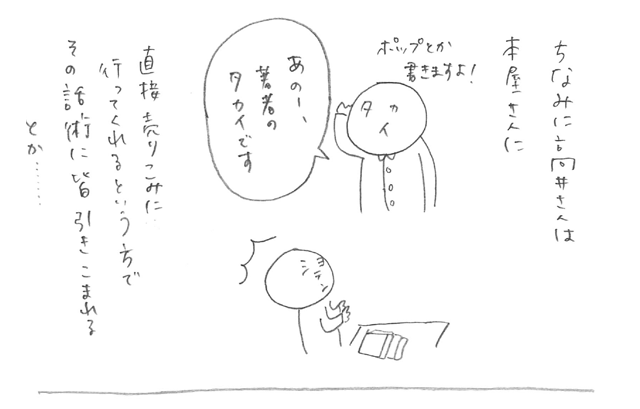 ちなみに高井さんは
本屋さんに
ポップとか
書きますよ!
タカイ
あのー、
著者の
タカイです
ショテン
直接売りこみに
行ってくれるという方で
その話術に皆引きこまれる
とか………